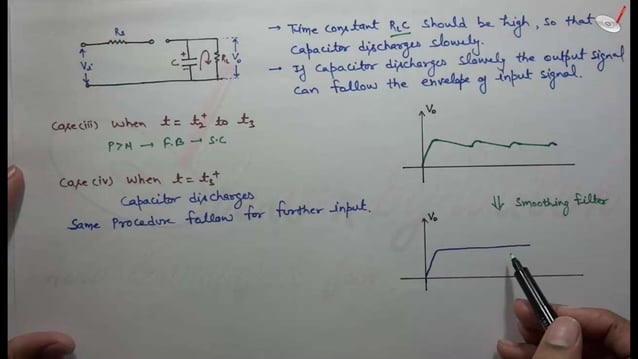 Rs
Vi
C
RL
Vo
→ Time constant RLC should be high, so that
capacitor discharges slowly.
→ If capacitor discharges slowly the output signal
can follow the envelope of input signal.
Case(iii) when t = t2+ to t3
P>N → F.B → S.C
Case(iv) when t = t3+
Capacitor discharges
Same Procedure follow for further input.
Vo
⇓ Smoothing filter
Vo